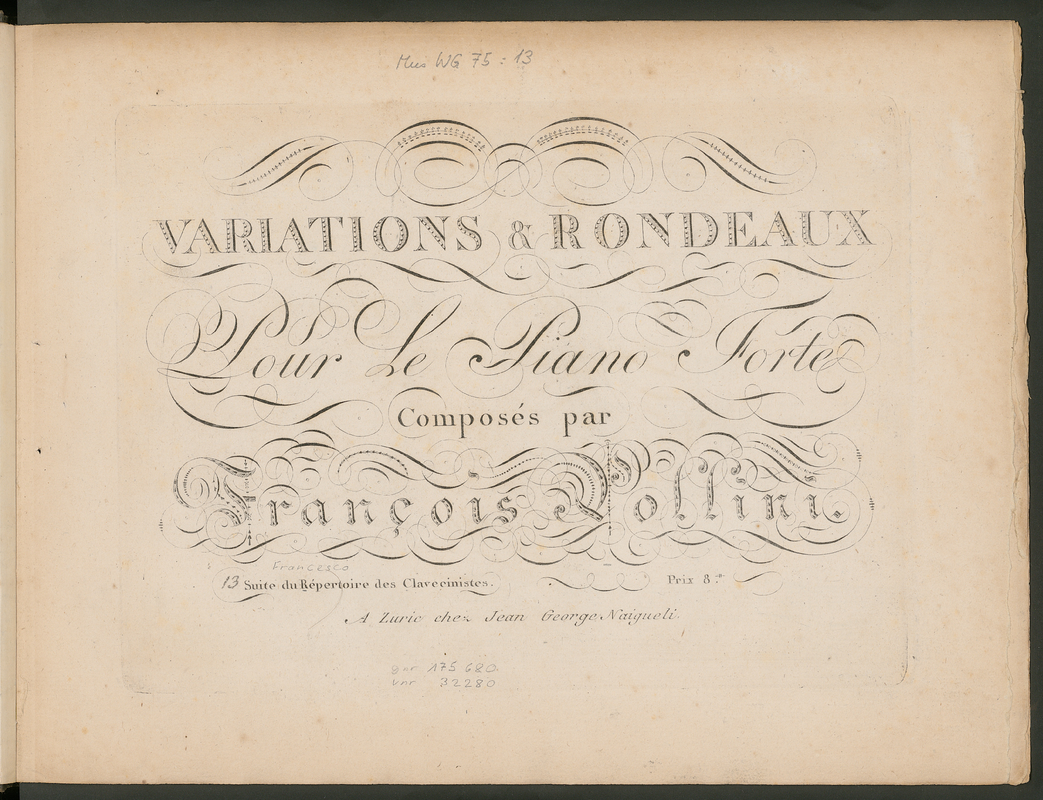 Mus WG 75 : 13
VARIATIONS & RONDEAUX
Pour Le Piano Forte
Composés par
François Pollini.
Francesco
13 Suite du Répertoire des Clavecinistes. Prix 8.
A Zuric chez Jean George Naigueli.
gnr 175 680
vnr 32280